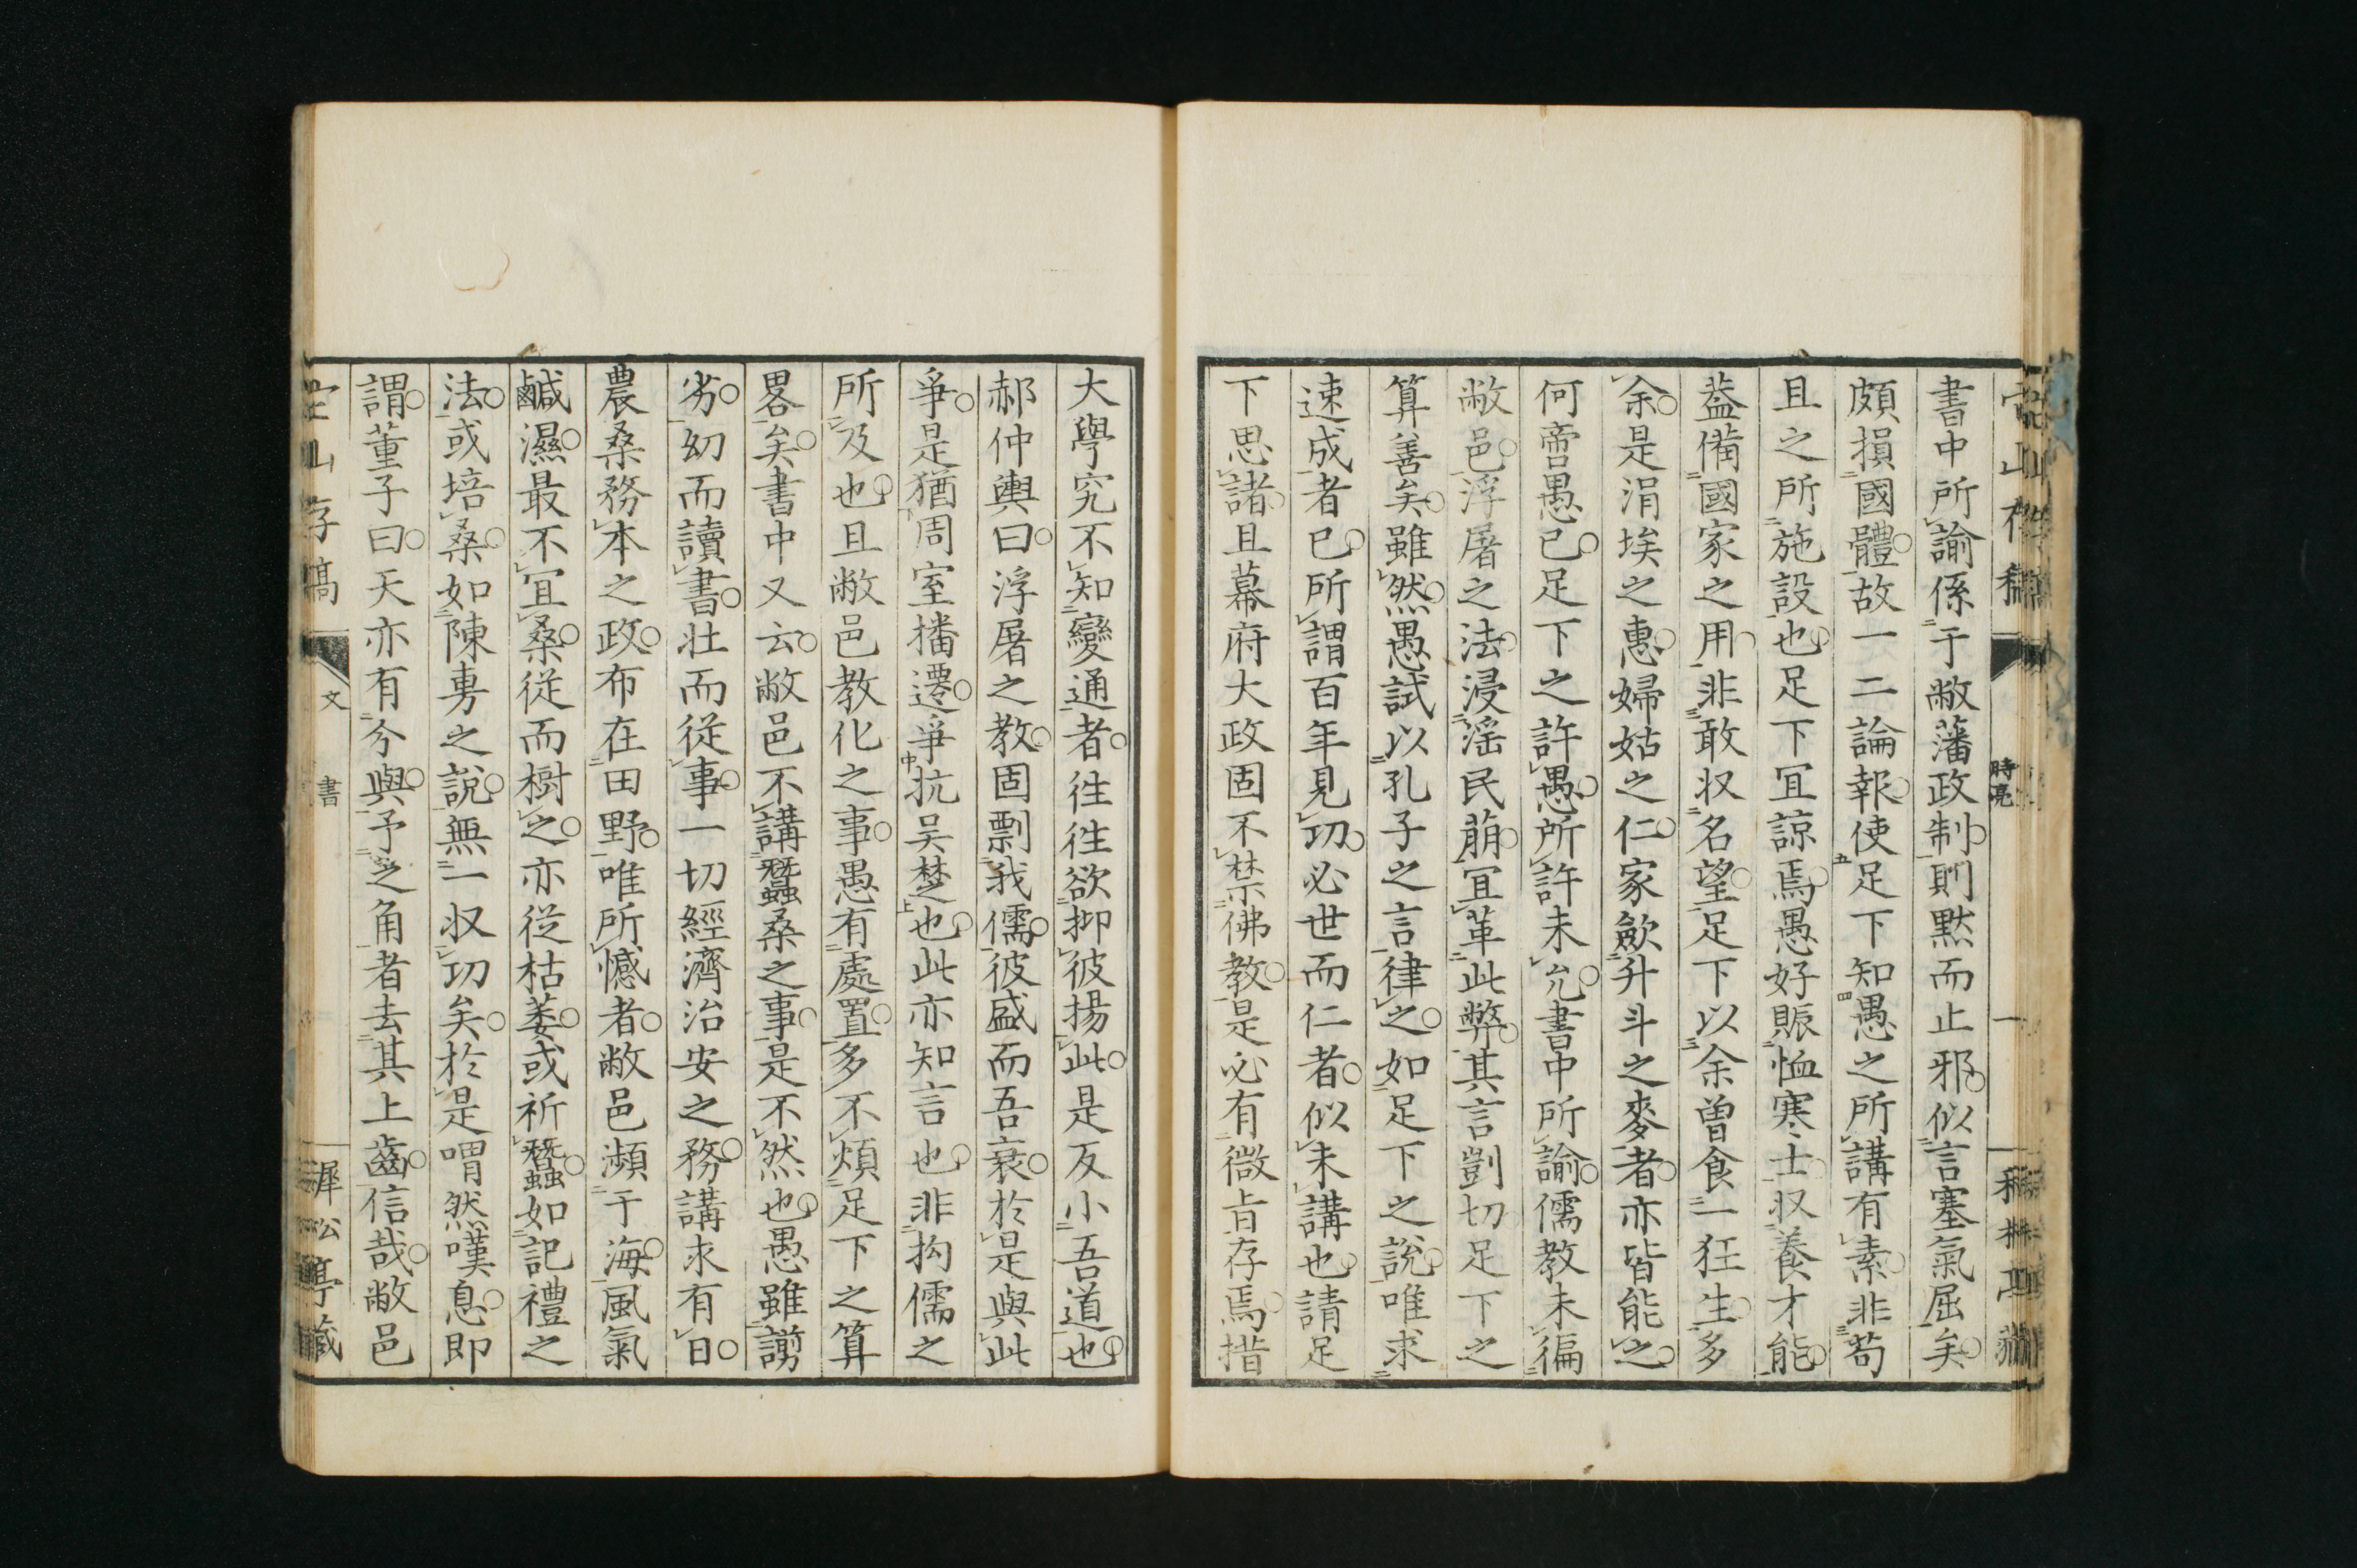 書中所諭係于敝藩政制則黙而止邪似言塞氣屈矣
頗損國體故一二論報使足下知愚之所講有素非苟
且之所施設也足下冝諒焉愚好賑恤寒士収養才能
葢備國家之用非敢収名望足下以余曽食一狂生多
余是涓埃之惠婦姑之仁家歛升斗之麥者亦皆能之
何啻愚已足下之許愚所許未允書中所諭儒教未徧
敝邑浮屠之法浸滛民萠冝革此弊其言剴切足下之
算善矣雖然愚試以孔子之言律之如足下之說唯求
速成者已所謂百年見功必世而仁者似未講也請足
下思諸且幕府大政固不禁佛教是必有微旨存焉措
大學究不知變通者徃徃欲抑彼揚此是反小吾道也
郝仲輿曰浮屠之教固剽我儒彼盛而吾衰於是與此
爭是猶周室播遷爭抗吴楚也此亦知言也非拘儒之
所及也且敝邑教化之事愚有處置多不煩足下之算
畧矣書中又云敝邑不講蠶桑之事是不然也愚雖謭
劣幼而讀書壯而從事一切經濟治安之務講求有日
農桑務本之政布在田野唯所憾者敝邑瀕于海風氣
鹹濕最不冝桑從而樹之亦從枯萎或祈蠶如記禮之
法或培桑如陳旉之說無一収功矣於是喟然嘆息即
謂董子曰天亦有今與予之角者去其上齒信哉敝邑
山存稿
文
書
犀松亭藏